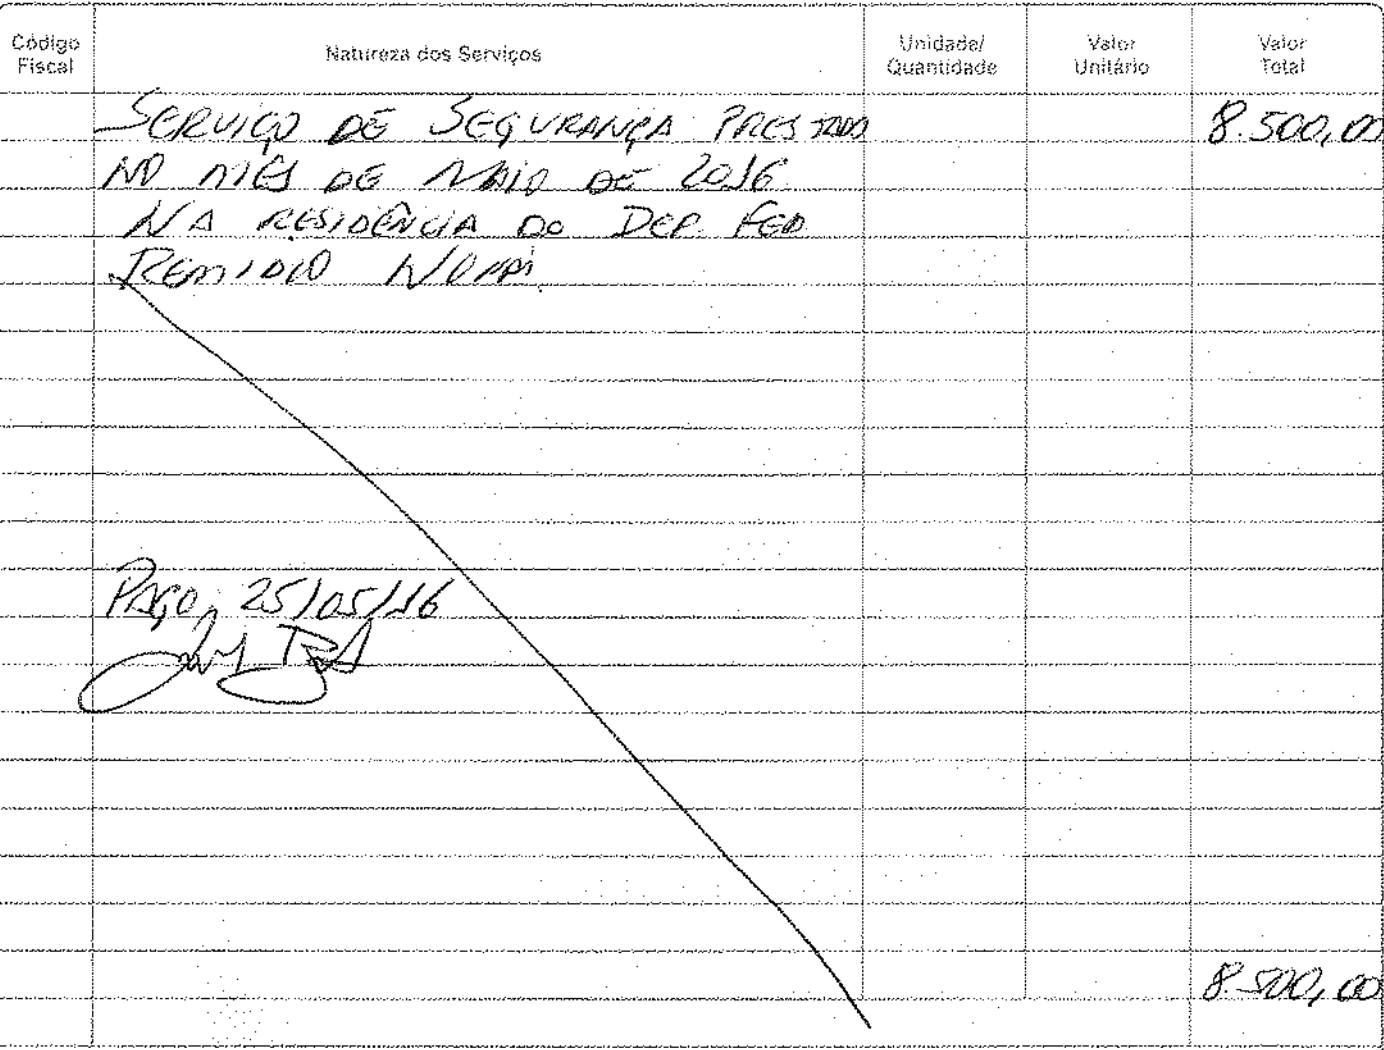 Código Fiscal
Natureza dos Serviços
Unidade/ Quantidade
Valor Unitário
Valor Total
SERVIÇO DE SEGURANÇA PRESTADO 8.500,00
NO MÊS DE MAIO DE 2016
NA RESIDÊNCIA DO DEP. FED
REMIDIO MONAI
PAGO, 25/05/16
8.500,00